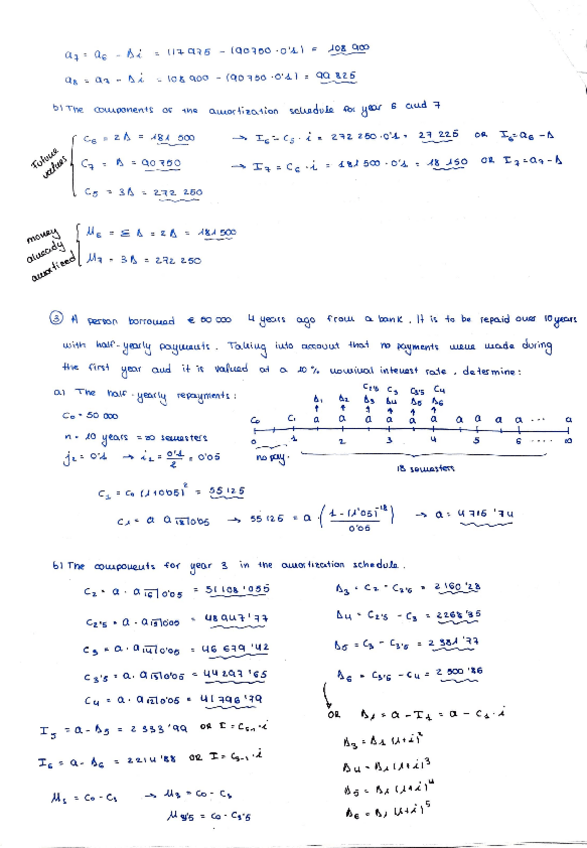 a7 = a6 - Δi = 117 975 - (90 750 · 0'1) = 108 900
a8 = a7 - Δi = 108 900 - (90 750 · 0'1) = 99 825
b) The components of the amortization schedule for year 6 and 7
Future values
C6 = 2Δ = 181 500 → I6 = C5 · i = 272 250 · 0'1 = 27 225 OR I6 = a6 - Δ
C7 = Δ = 90 750 → I7 = C6 · i = 181 500 · 0'1 = 18 150 OR I7 = a7 - Δ
C5 = 3Δ = 272 250
money already amortized
M6 = Σ Δ = 2Δ = 181 500
M7 = 3Δ = 272 250
③ A person borrowed € 50 000 4 years ago from a bank. It is to be repaid over 10 years
with half-yearly payments. Taking into account that no payments were made during
the first year and it is valued at a 10% nominal interest rate, determine:
a) The half-yearly repayments:
C0 = 50 000
n = 10 years = 20 semesters
j2 = 0'1 → i2 = 0'1/2 = 0'05
C2'5 C3 C3'5 C4
Δ1 Δ2 Δ3 Δ4 Δ5 Δ6
C0 C1 a a a a a a a a a ... a
0 1 2 3 4 5 6 ... 10
no pay.
18 semesters
C1 = C0 (1+0'05)² = 55 125
C1 = a a18|0'05 → 55 125 = a · (1 - (1'05)^-18 / 0'05) → a = 4 715'74
b) The components for year 3 in the amortization schedule.
C2 = a · a16|0'05 = 51 108'055 Δ3 = C2 - C2'5 = 2 160'28
C2'5 = a · a15|0'05 = 48 947'77 Δ4 = C2'5 - C3 = 2268'35
C3 = a · a14|0'05 = 46 679'42 Δ5 = C3 - C3'5 = 2 381'77
C3'5 = a · a13|0'05 = 44 297'65 Δ6 = C3'5 - C4 = 2 500'86
C4 = a · a12|0'05 = 41 796'79
OR Δ1 = a - I1 = a - C1 · i
I5 = a - Δ5 = 2 333'99 OR I = Cs-1 · i
Δ3 = Δ1 (1+i)²
I6 = a - Δ6 = 2214'88 OR I = Cs-1 · i
Δ4 = Δ1 (1+i)³
Δ5 = Δ1 (1+i)⁴
Ms = C0 - Cs → M3 = C0 - C3
Δ6 = Δ1 (1+i)⁵
M3'5 = C0 - C3'5